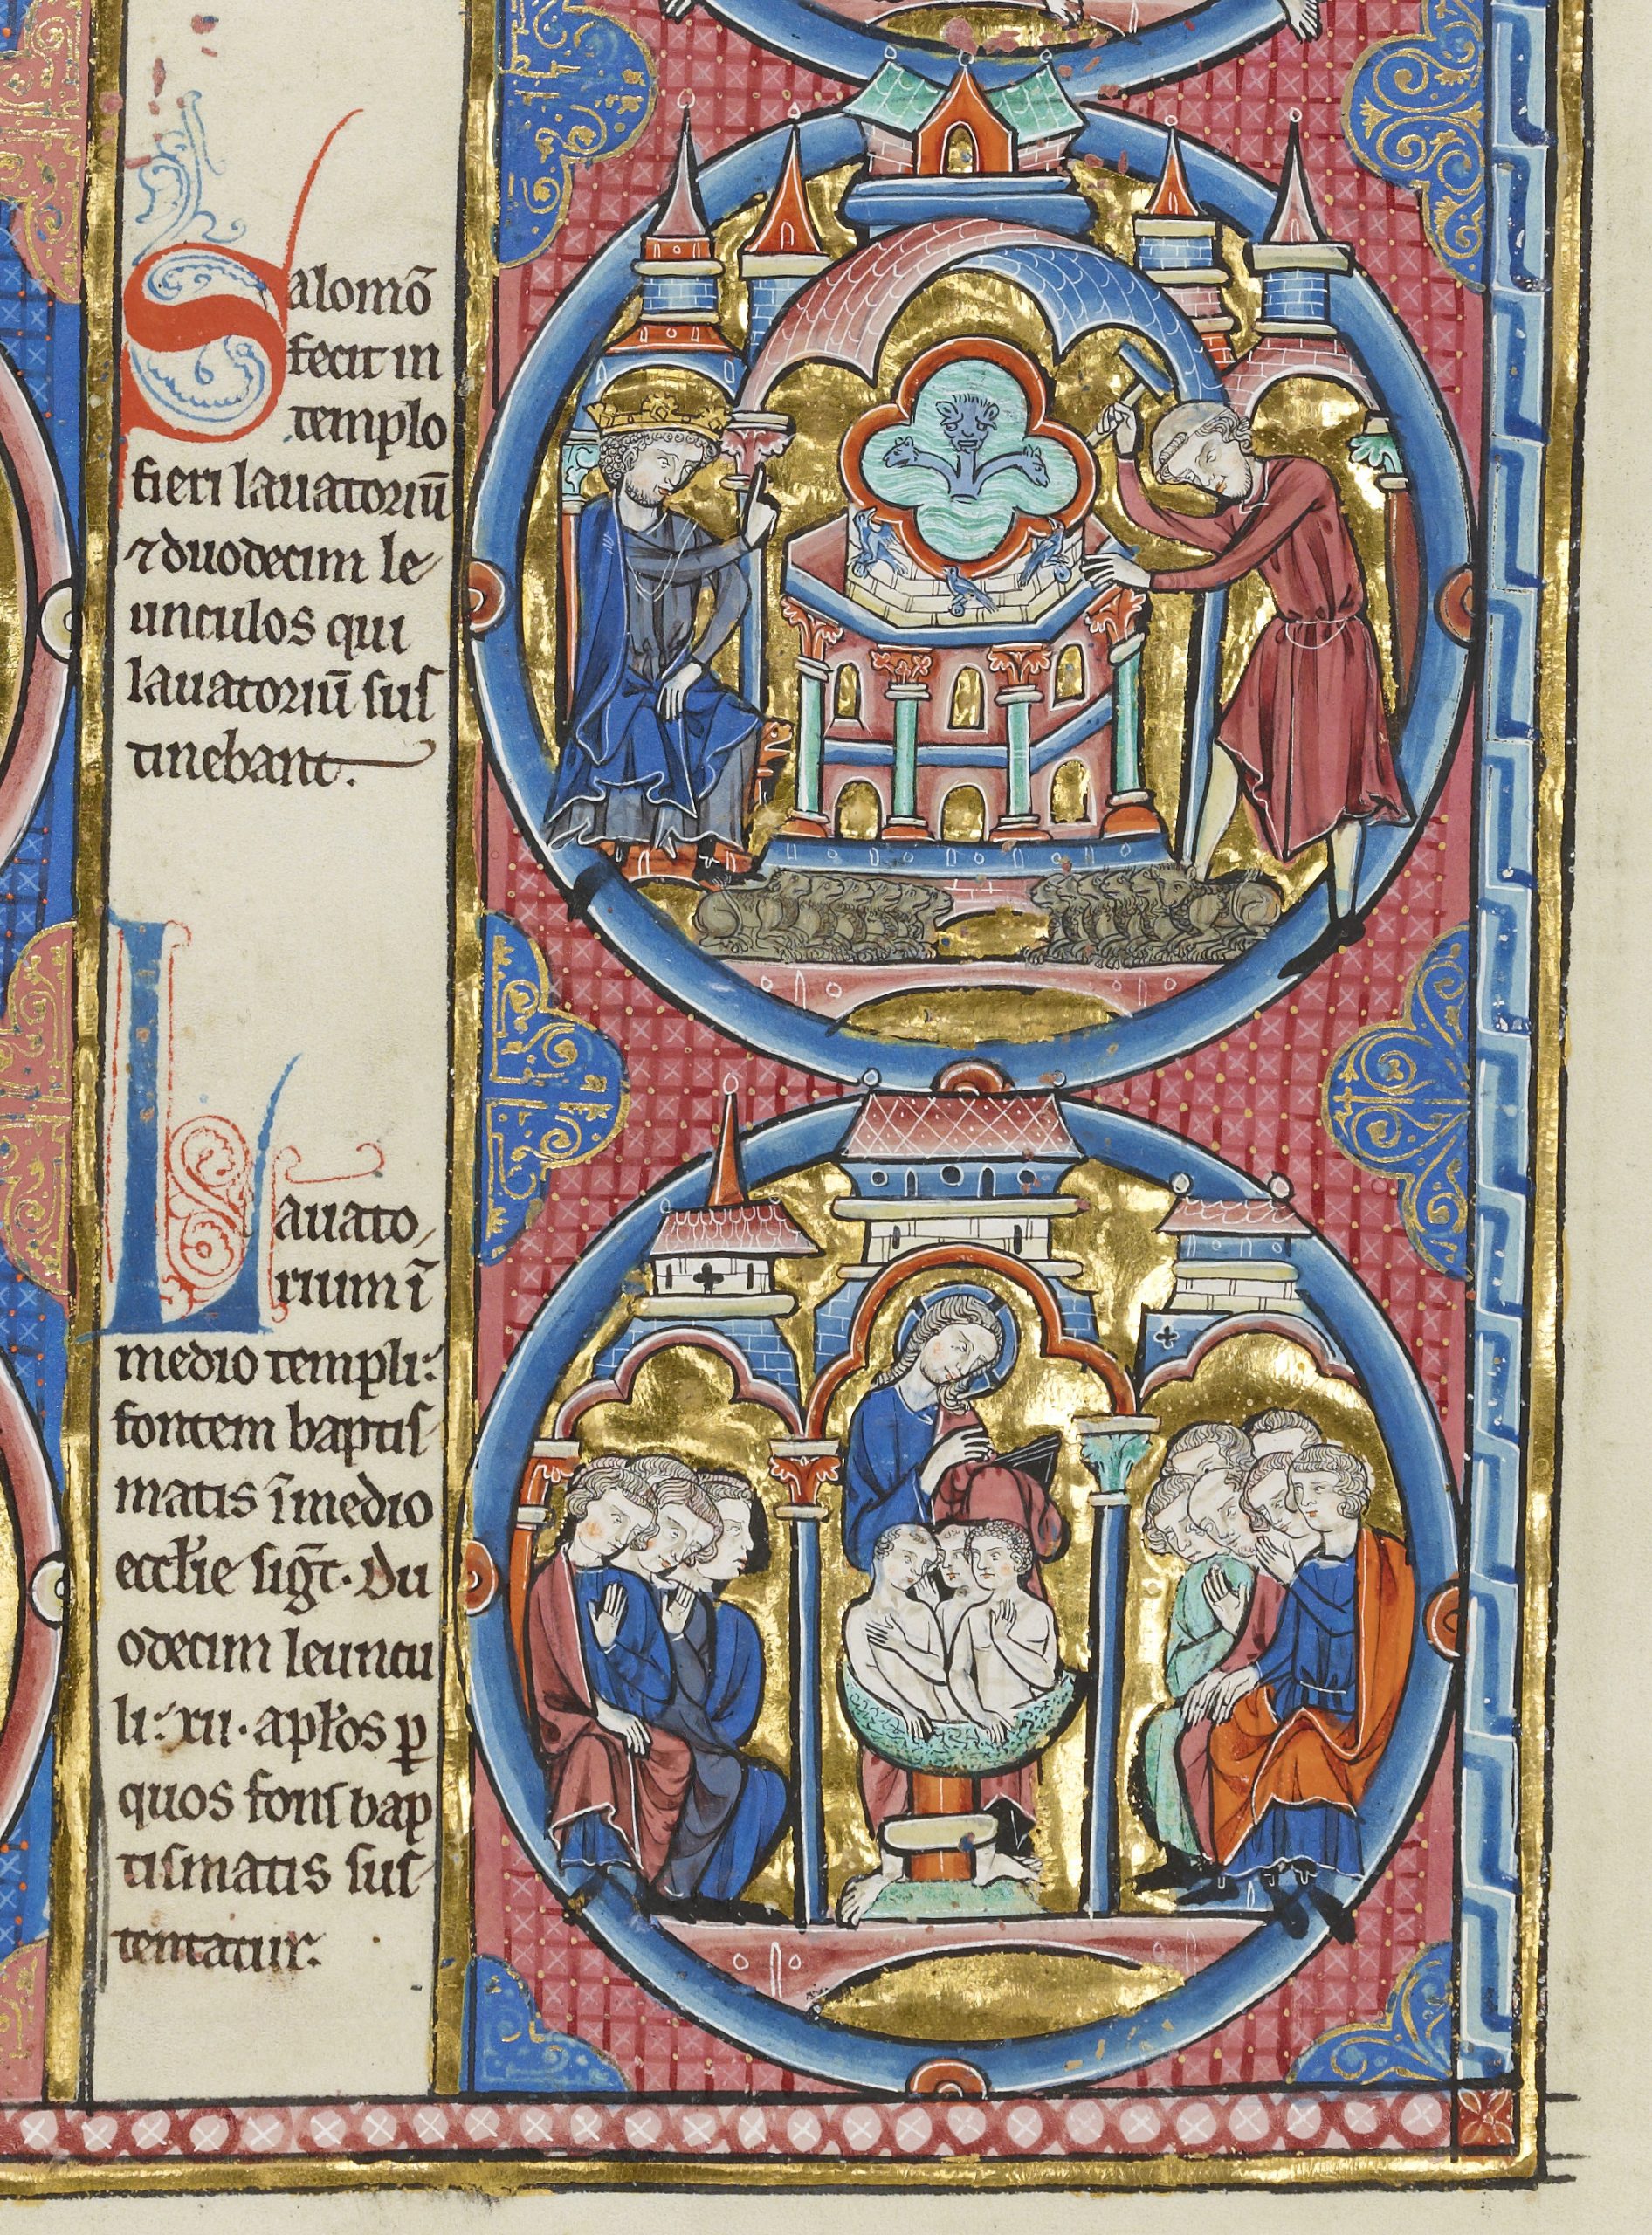 Salomō
fecit in
templo
fieri lauatoriū
⁊ duodecim le
unculos qui
lauatoriū sus
tinebant.
Lauato
rium ī
medio templi:
fontem baptis
matis ī medio
eccl'ie siḡt. Du
odecim leuncu
li: xii. apł'os ꝑ
quos fons bap
tismatis sus
tentatur.